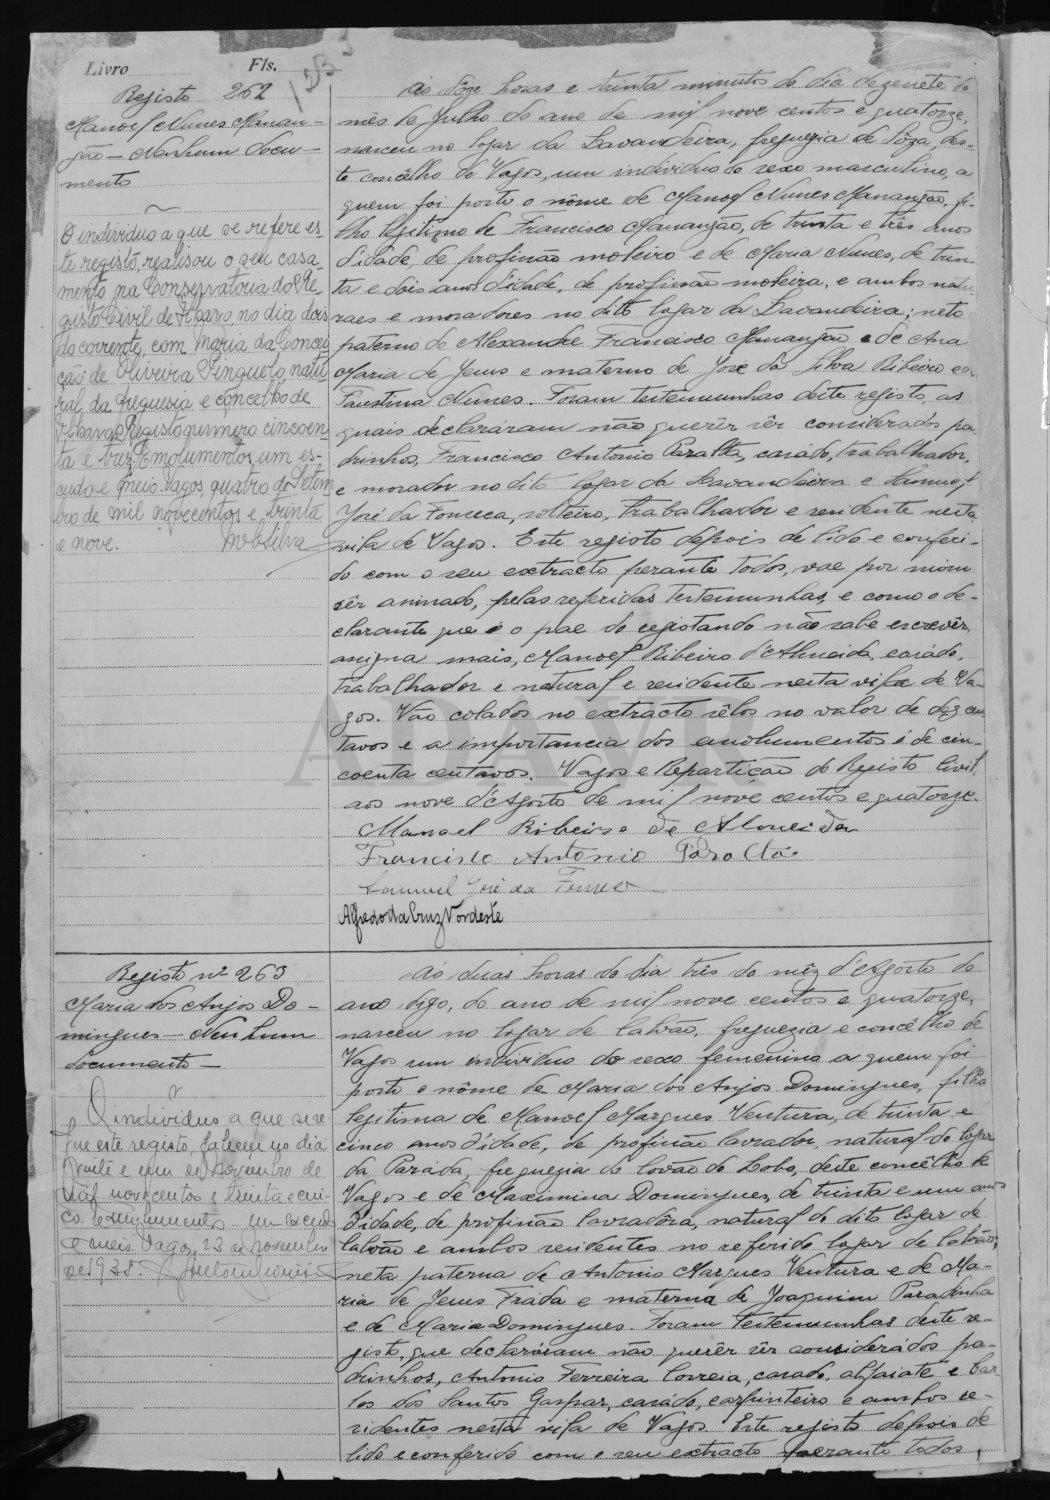 Livro Fls.
Registo 262
Manoel Nunes Manan-
ção - Nenhum docu-
mento
O individuo a que se refere es-
te registo, realisou o seu casa-
mento na Conservatoria do Re-
gisto Civil de Ilhavo no dia dois
do corrente, com Maria da Concei-
ção de Oliveira Pinguelo, natu-
ral da freguesia e concelho de
Ilhavo. Registo numero cincoen-
ta e trez. Emolumentos um es-
cudo e meio. Vagos, quatro de Setem
bro de mil novecentos e trinta
e nove.
Ás dôze horas e trinta minutos do dia dezenete do
mês de Julho do ano de mil nove centos e quatorze,
nasceu no logar da Lavandeira, freguezia de Sôza, dês-
te concêlho de Vagos, um individuo do sexo masculino, a
quem foi posto o nôme de Manoel Nunes Manação, fi-
lho legitimo de Francisco Manação, de trinta e três anos
d'idade, de profissão moleiro e de Maria Nunes, de trin-
ta e dois anos d'idade, de profissão moleira, e ambos natu-
raes e moradores no dito logar da Lavandeira; neto
paterno de Alexandre Francisco Manação e de Ana
Maria de Jesus e materno de José da Silva Ribeiro e de
Faustina Nunes. Foram testemunhas dêste registo, as
quais declaráram não querêr sêr considerados pa-
drinhos, Francisco Antonio Paralta, casado, trabalhador,
e morador no dito logar da Lavandeira e Samuel
José da Fonseca, solteiro, trabalhador e residente nesta
vila de Vagos. Este registo depois de lido e conferi-
do com o seu extracto perante todos, vae por mim
sêr assinado, pelas referidas testemunhas, e como o de-
clarante que é o pae do registando não sabe escrevêr,
assigna mais, Manoel Ribeiro d'Almeida, casado,
trabalhador e natural e residente nesta vila de Va-
gos. Vão colados no extracto sêlos no valor de dez cen
tavos e a importancia dos emolumentos é de cin-
coenta centavos. Vagos e Repartição do Registo Civil,
aos nove d'Agosto de mil nove centos e quatorze.
Manoel Ribeiro de Almeida
Francisco Antonio Paralta
Samuel José da Fonseca
Alfredo da Cruz Nordeste
Registo nº 263
Maria dos Anjos Do-
mingues - Nenhum
documento -
O individuo a que se re
fere este registo, faleceu no dia
vinte e um de Novembro de
mil novecentos e trinta e cin-
co. Emolumentos um escudo
e meio. Vagos, 23 de Novembro
de 1935.
Ás duas horas do dia três do mêz d'Agosto do
ano digo, do ano de mil nove centos e quatorze,
nasceu no logar de Calvão, freguezia e concêlho de
Vagos um individuo do sexo femenino a quem foi
posto o nôme de Maria dos Anjos Domingues, filha
legitima de Manoel Marques Ventura, de trinta e
cinco anos d'idade, de profissão lavrador, natural do logar
da Paráda, freguezia de Covão do Lobo, deste concêlho de
Vagos e de Maximina Domingues, de trinta e um anos
d'idade, de profissão lavradôra, natural do dito logar de
Calvão e ambos residentes no referido logar de Calvão;
neta paterna de Antonio Marques Ventura e de Ma-
ria de Jesus Frada e materna de Joaquim Paradinha
e de Maria Domingues. Foram testemunhas deste re-
gisto, que declararam não querêr sêr considerádos pa-
drinhos, Antonio Ferreira Correia, casado, alfaiate e Car-
los dos Santos Gaspar, casádo, carpinteiro e ambos re-
sidentes nesta vila de Vagos. Este registo depois de
lido e conferido com o seu extracto perante todos,